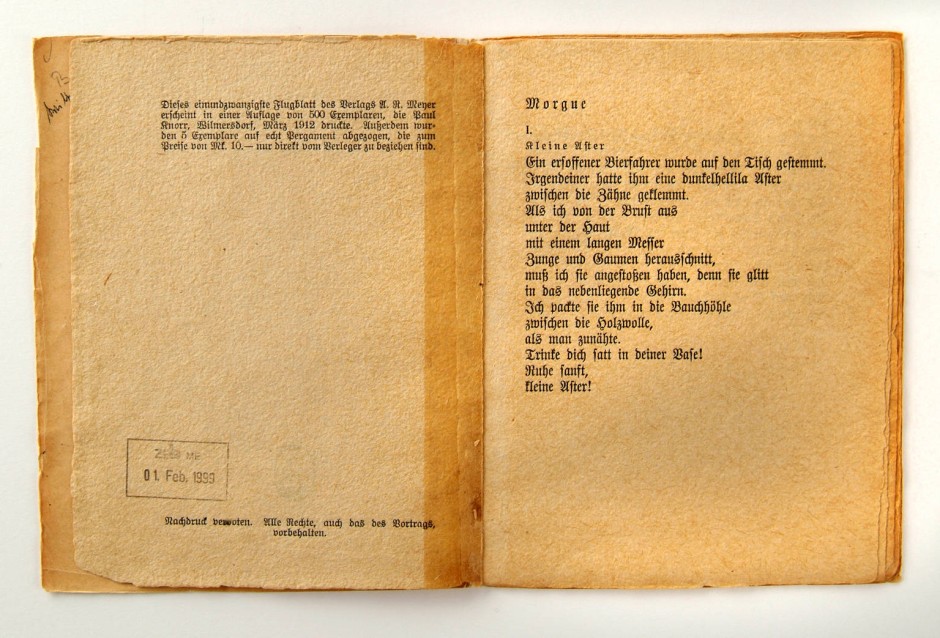 Dieses einundzwanzigste Flugblatt des Verlags A. R. Meyer
erscheint in einer Auflage von 500 Exemplaren, die Paul
Knorr, Wilmersdorf, März 1912 druckte. Außerdem wur-
den 5 Exemplare auf echt Pergament abgezogen, die zum
Preise von Mk. 10.— nur direkt vom Verleger zu beziehen sind.
01. Feb. 1999
Nachdruck verboten. Alle Rechte, auch das des Vortrags,
vorbehalten.
Morgue
I.
Kleine Aster
Ein ersoffener Bierfahrer wurde auf den Tisch gestemmt.
Irgendeiner hatte ihm eine dunkelhellila Aster
zwischen die Zähne geklemmt.
Als ich von der Brust aus
unter der Haut
mit einem langen Messer
Zunge und Gaumen herausschnitt,
muß ich sie angestoßen haben, denn sie glitt
in das nebenliegende Gehirn.
Ich packte sie ihm in die Bauchhöhle
zwischen die Holzwolle,
als man zunähte.
Trinke dich satt in deiner Vase!
Ruhe sanft,
kleine Aster!